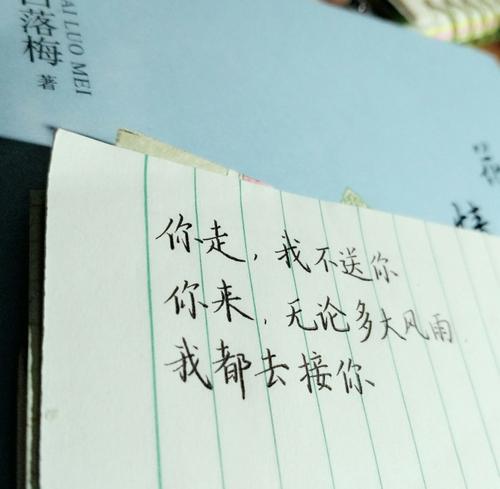 落梅
著
AI LUO MEI
你走，我不送你
你来，无论多大风雨，
我都去接你